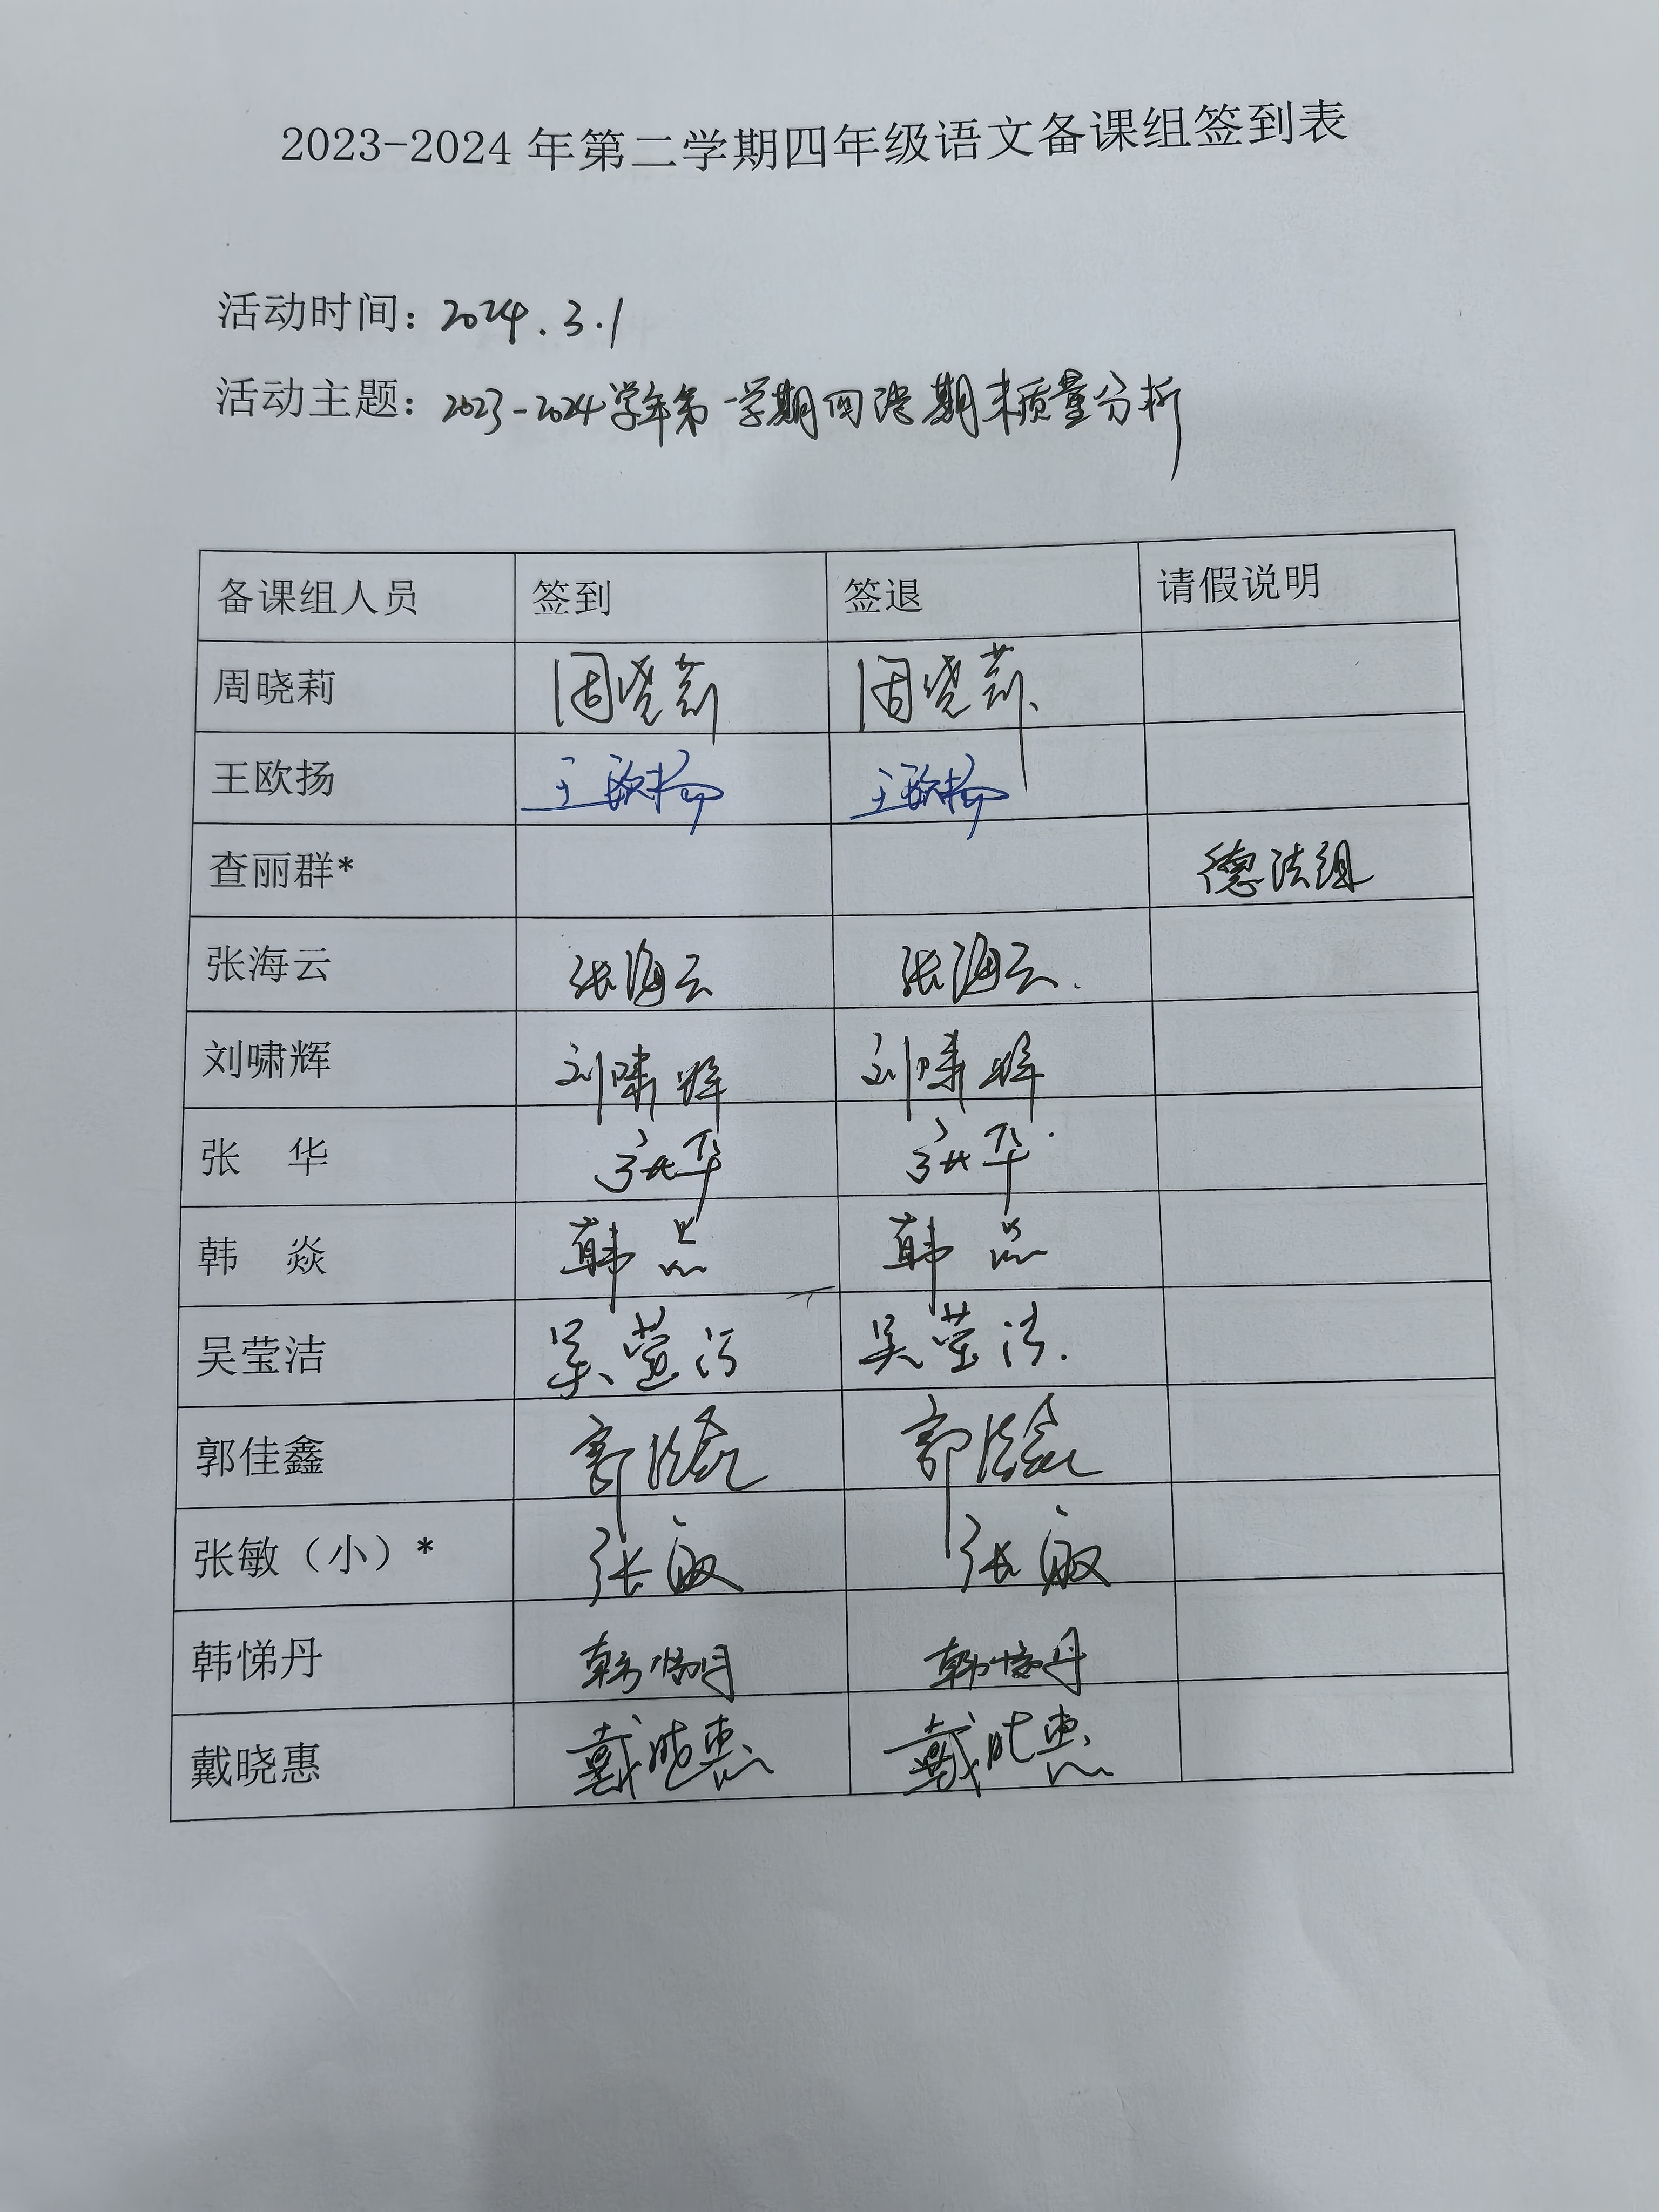 2023-2024 年第二学期四年级语文备课组签到表
活动时间：2024.3.1
活动主题：2023-2024学年第一学期四语期末质量分析
备课组人员 签到 签退 请假说明
周晓莉 周晓莉 周晓莉
王欧扬 王欧扬 王欧扬
查丽群* 德法组
张海云 张海云 张海云.
刘啸辉 刘啸辉 刘啸辉
张 华 张华 张华
韩 焱 韩焱 韩焱
吴莹洁 吴莹洁 吴莹洁.
郭佳鑫 郭佳鑫 郭佳鑫
张敏（小）* 张敏 张敏
韩悌丹 韩悌丹 韩悌丹
戴晓惠 戴晓惠 戴晓惠